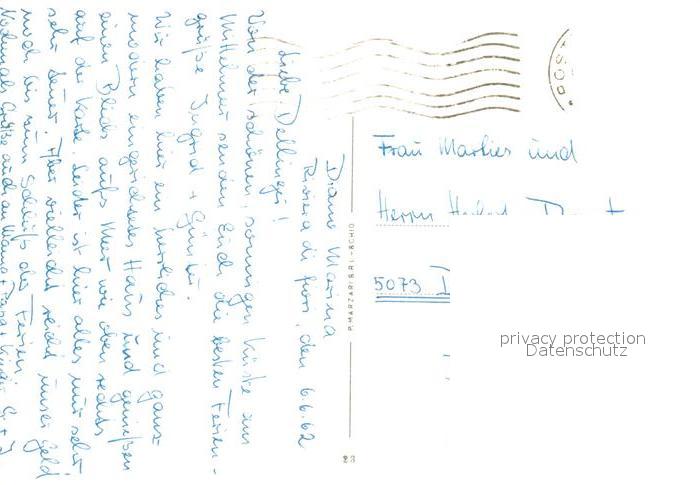 Diano Marina
Riviera di fiori, den 6.6.62
Liebe Dellinger!
Von der schönen, sonnigen Küste am
Mittelmeer senden Euch die besten Ferien-
grüße Ingrid + Günter.
Wir haben hier ein herrliches und ganz
modern eingerichtetes Haus und genießen
einen Blick aufs Meer wie oben rechts
auf der Karte. Leider ist hier alles nur sehr
sehr teuer. Aber vielleicht reicht unser Geld
noch bis zum Schluß der Ferien.
Nochmals Grüße auch an Mama Papa + Kinder
P. MARZARI S.R.L. - SCHIO
23
POST
Frau Marlies und
Herrn
5073
privacy protection
Datenschutz